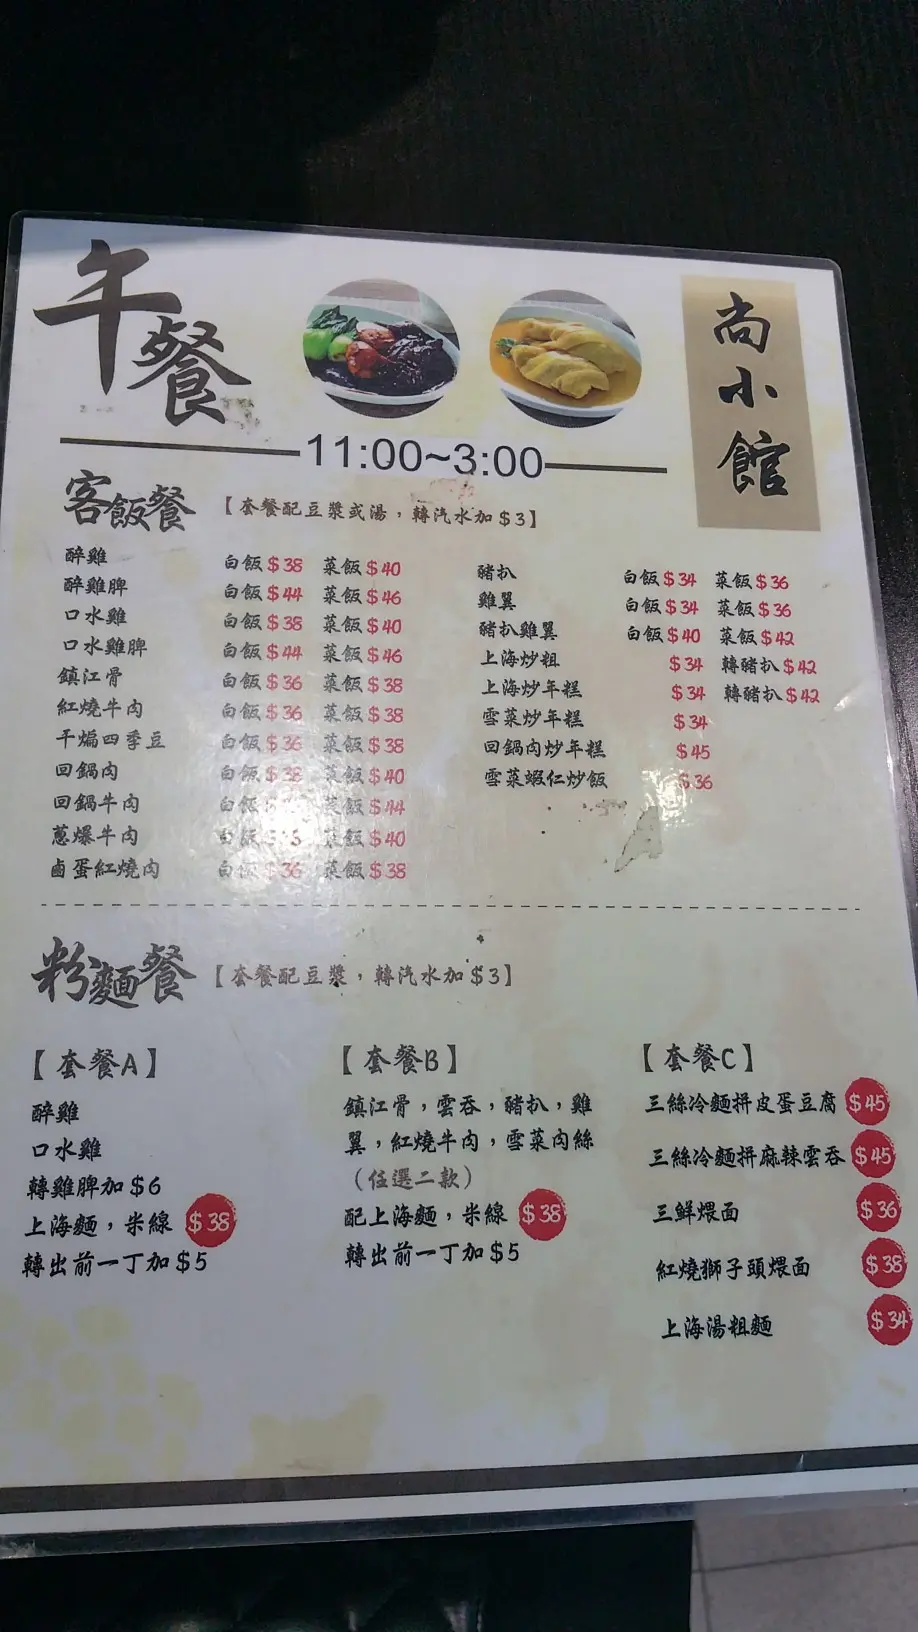 午餐
尚小館
11:00~3:00
客飯餐 【套餐配豆漿或湯，轉汽水加$3】
醉雞 白飯$38 菜飯$40
醉雞髀 白飯$44 菜飯$46
口水雞 白飯$38 菜飯$40
口水雞髀 白飯$44 菜飯$46
鎮江骨 白飯$36 菜飯$38
紅燒牛肉 白飯$36 菜飯$38
干煸四季豆 白飯$36 菜飯$38
回鍋肉 白飯$38 菜飯$40
回鍋牛肉 白飯 菜飯$44
蔥爆牛肉 白飯 菜飯$40
鹵蛋紅燒肉 白飯$36 菜飯$38
豬扒 白飯$34 菜飯$36
雞翼 白飯$34 菜飯$36
豬扒雞翼 白飯$40 菜飯$42
上海炒粗 $34 轉豬扒$42
上海炒年糕 $34 轉豬扒$42
雪菜炒年糕 $34
回鍋肉炒年糕 $45
雪菜蝦仁炒飯 $36
粉麵餐 【套餐配豆漿，轉汽水加$3】
【套餐A】
醉雞
口水雞
轉雞髀加$6
上海麵，米線 $38
轉出前一丁加$5
【套餐B】
鎮江骨，雲吞，豬扒，雞
翼，紅燒牛肉，雪菜肉絲
（任選二款）
配上海麵，米線 $38
轉出前一丁加$5
【套餐C】
三絲冷麵拼皮蛋豆腐 $45
三絲冷麵拼麻辣雲吞 $45
三鮮煨面 $36
紅燒獅子頭煨面 $38
上海湯粗麵 $34